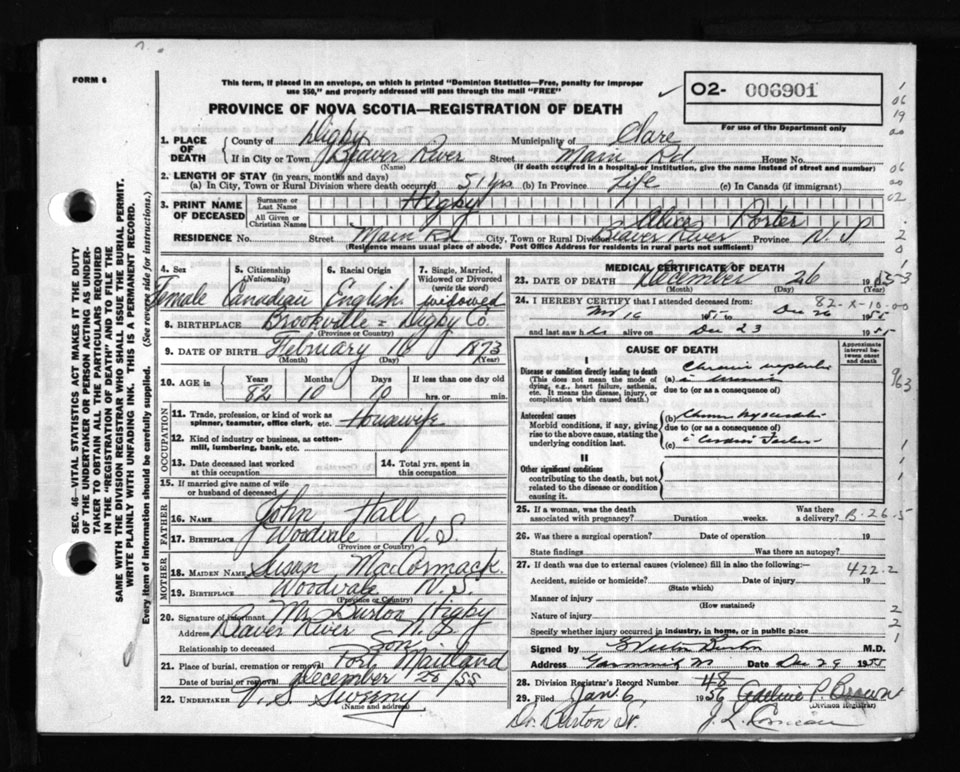 FORM 6
This form, if placed in an envelope, on which is printed "Dominion Statistics—Free, penalty for improper
use $50," and properly addressed will pass through the mail "FREE"
02- 006901
For use of the Department only
PROVINCE OF NOVA SCOTIA—REGISTRATION OF DEATH
1. PLACE OF DEATH
County of Digby Municipality of Clare
If in City or Town Beaver River Street Main Rd House No.
(Name) (If death occurred in a hospital or institution, give the name instead of street and number)
2. LENGTH OF STAY (in years, months and days)
(a) In City, Town or Rural Division where death occurred 51 yrs (b) In Province Life (c) In Canada (if immigrant)
3. PRINT NAME OF DECEASED
Surname or Last Name Higby
All Given or Christian Names Alice Porter
RESIDENCE No. Street Main Rd City, Town or Rural Division Beaver River Province N.S.
(Residence means usual place of abode. Post Office Address for residents in rural parts not sufficient)
4. Sex Female
5. Citizenship (Nationality) Canadian
6. Racial Origin English
7. Single, Married, Widowed or Divorced (write the word) widowed
8. BIRTHPLACE Brookville - Digby Co.
(Province or Country)
9. DATE OF BIRTH February 16 1873
(Month) (Day) (Year)
10. AGE in Years Months Days If less than one day old
82 10 10 hrs. or min.
OCCUPATION
11. Trade, profession, or kind of work as spinner, teamster, office clerk, etc. Housewife
12. Kind of industry or business, as cotton-mill, lumbering, bank, etc.
13. Date deceased last worked at this occupation
14. Total yrs. spent in this occupation
15. If married give name of wife or husband of deceased
FATHER
16. NAME John Hall
17. BIRTHPLACE Woodvale N.S.
(Province or Country)
MOTHER
18. MAIDEN NAME Susan MacCormack
19. BIRTHPLACE Woodvale N.S.
(Province or Country)
20. Signature of informant Mr Burton Higby
Address Beaver River N.S.
Relationship to deceased Son
21. Place of burial, cremation or removal Port Maitland
Date of burial or removal December 28/55
22. UNDERTAKER V. S. Sweeny
(Name and address)
MEDICAL CERTIFICATE OF DEATH
23. DATE OF DEATH December 26 1955
(Month) (Day) (Year)
24. I HEREBY CERTIFY that I attended deceased from:
16 1955 to Dec 26 1955
82-X-10-00
and last saw h alive on Dec 23 1955
CAUSE OF DEATH
Approximate interval between onset and death
I
Disease or condition directly leading to death
(This does not mean the mode of dying, e.g., heart failure, asthenia, etc. It means the disease, injury, or complication which caused death.)
(a) Chronic
due to (or as a consequence of)
Antecedent causes
Morbid conditions, if any, giving rise to the above cause, stating the underlying condition last.
(b)
due to (or as a consequence of)
(c)
II
Other significant conditions
contributing to the death, but not related to the disease or condition causing it.
25. If a woman, was the death associated with pregnancy? Duration weeks. Was there a delivery? B-26-5
26. Was there a surgical operation? Date of operation 19
State findings Was there an autopsy?
27. If death was due to external causes (violence) fill in also the following:- 422-2
Accident, suicide or homicide? Date of injury 19
(State which)
Manner of injury
(How sustained)
Nature of injury
Specify whether injury occurred in industry, in home, or in public place
Signed by Burton M.D.
Address Date Dec 29 1955
28. Division Registrar's Record Number 48
29. Filed Jan. 6 1956 P. Brown
(Division Registrar)
Dr. Burton J. L. Comeau
SEC. 46—VITAL STATISTICS ACT MAKES IT THE DUTY
OF THE UNDERTAKER OR PERSON ACTING AS UNDER-
TAKER TO OBTAIN ALL THE PARTICULARS REQUIRED
IN THE "REGISTRATION OF DEATH" AND TO FILE THE
SAME WITH THE DIVISION REGISTRAR WHO SHALL ISSUE THE BURIAL PERMIT.
WRITE PLAINLY WITH UNFADING INK. THIS IS A PERMANENT RECORD.
Every item of information should be carefully supplied. (See reverse side for instructions.)
963